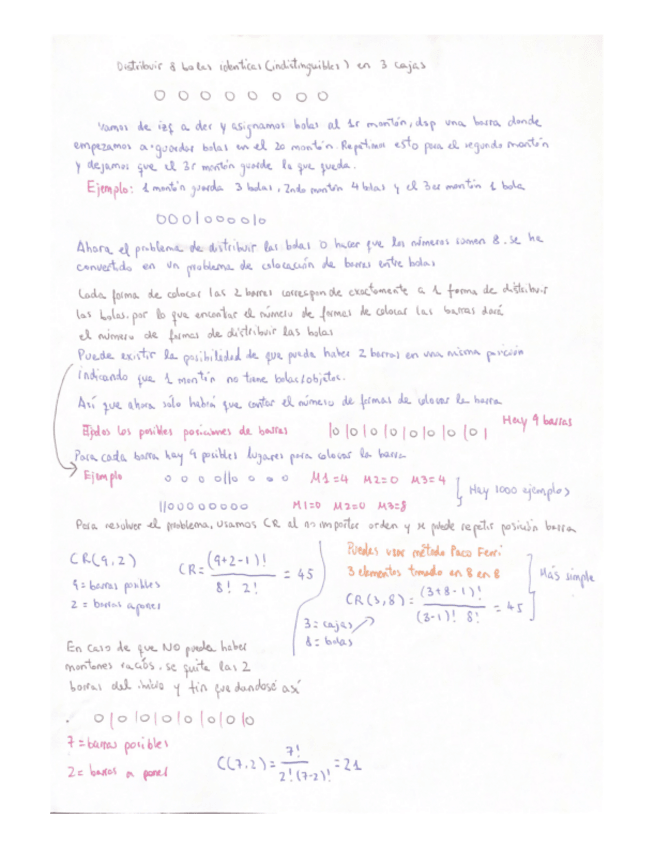 Distribuir 8 bolas identicas (indistinguibles) en 3 cajas
O O O O O O O O
Vamos de izq a der y asignamos bolas al 1r montón, dsp una barra donde
empezamos a guardar bolas en el 2o montón. Repetimos esto para el segundo montón
y dejamos que el 3r montón guarde lo que queda.
Ejemplo: 1 montón guarda 3 bolas, 2ndo montón 4 bolas y el 3er montón 1 bola
OOO|OOOO|O
Ahora el problema de distribuir las bolas o hacer que los números sumen 8. se ha
convertido en un problema de colocación de barras entre bolas
Cada forma de colocar las 2 barras corresponde exactamente a 1 forma de distribuir
las bolas. por lo que encontar el número de formas de colocar las barras dará
el número de formas de distribuir las bolas
Puede existir la posibilidad de que pueda haber 2 barras en una misma posición
indicando que 1 montón no tiene bolas/objetos.
Así que ahora sólo habrá que contar el número de formas de colocar la barra
los posibles posiciones de barras |O|O|O|O|O|O|O|O| Hay 9 barras
Para cada barra hay 9 posibles lugares para colocar la barra
Ejemplo O O O O||O O O O M1=4 M2=0 M3=4
||OOOOOOOO M1=0 M2=0 M3=8
Hay 1000 ejemplos
Para resolver el problema, usamos CR al no importar orden y se puede repetir posición barra
CR(9,2)
9 = barras posibles
2 = barras a poner
CR = (9+2-1)! / 8! 2! = 45
Puedes usar método Paco Ferri
3 elementos tomado en 8 en 8
CR(3,8) = (3+8-1)! / (3-1)! 8! = 45
Más simple
3 = cajas
8 = bolas
En caso de que NO pueda haber
montones vacíos. se quita las 2
barras del inicio y fin quedandose así
O|O|O|O|O|O|O|O
7 = barras posibles
2 = barras a poner
C(7,2) = 7! / 2!(7-2)! = 21